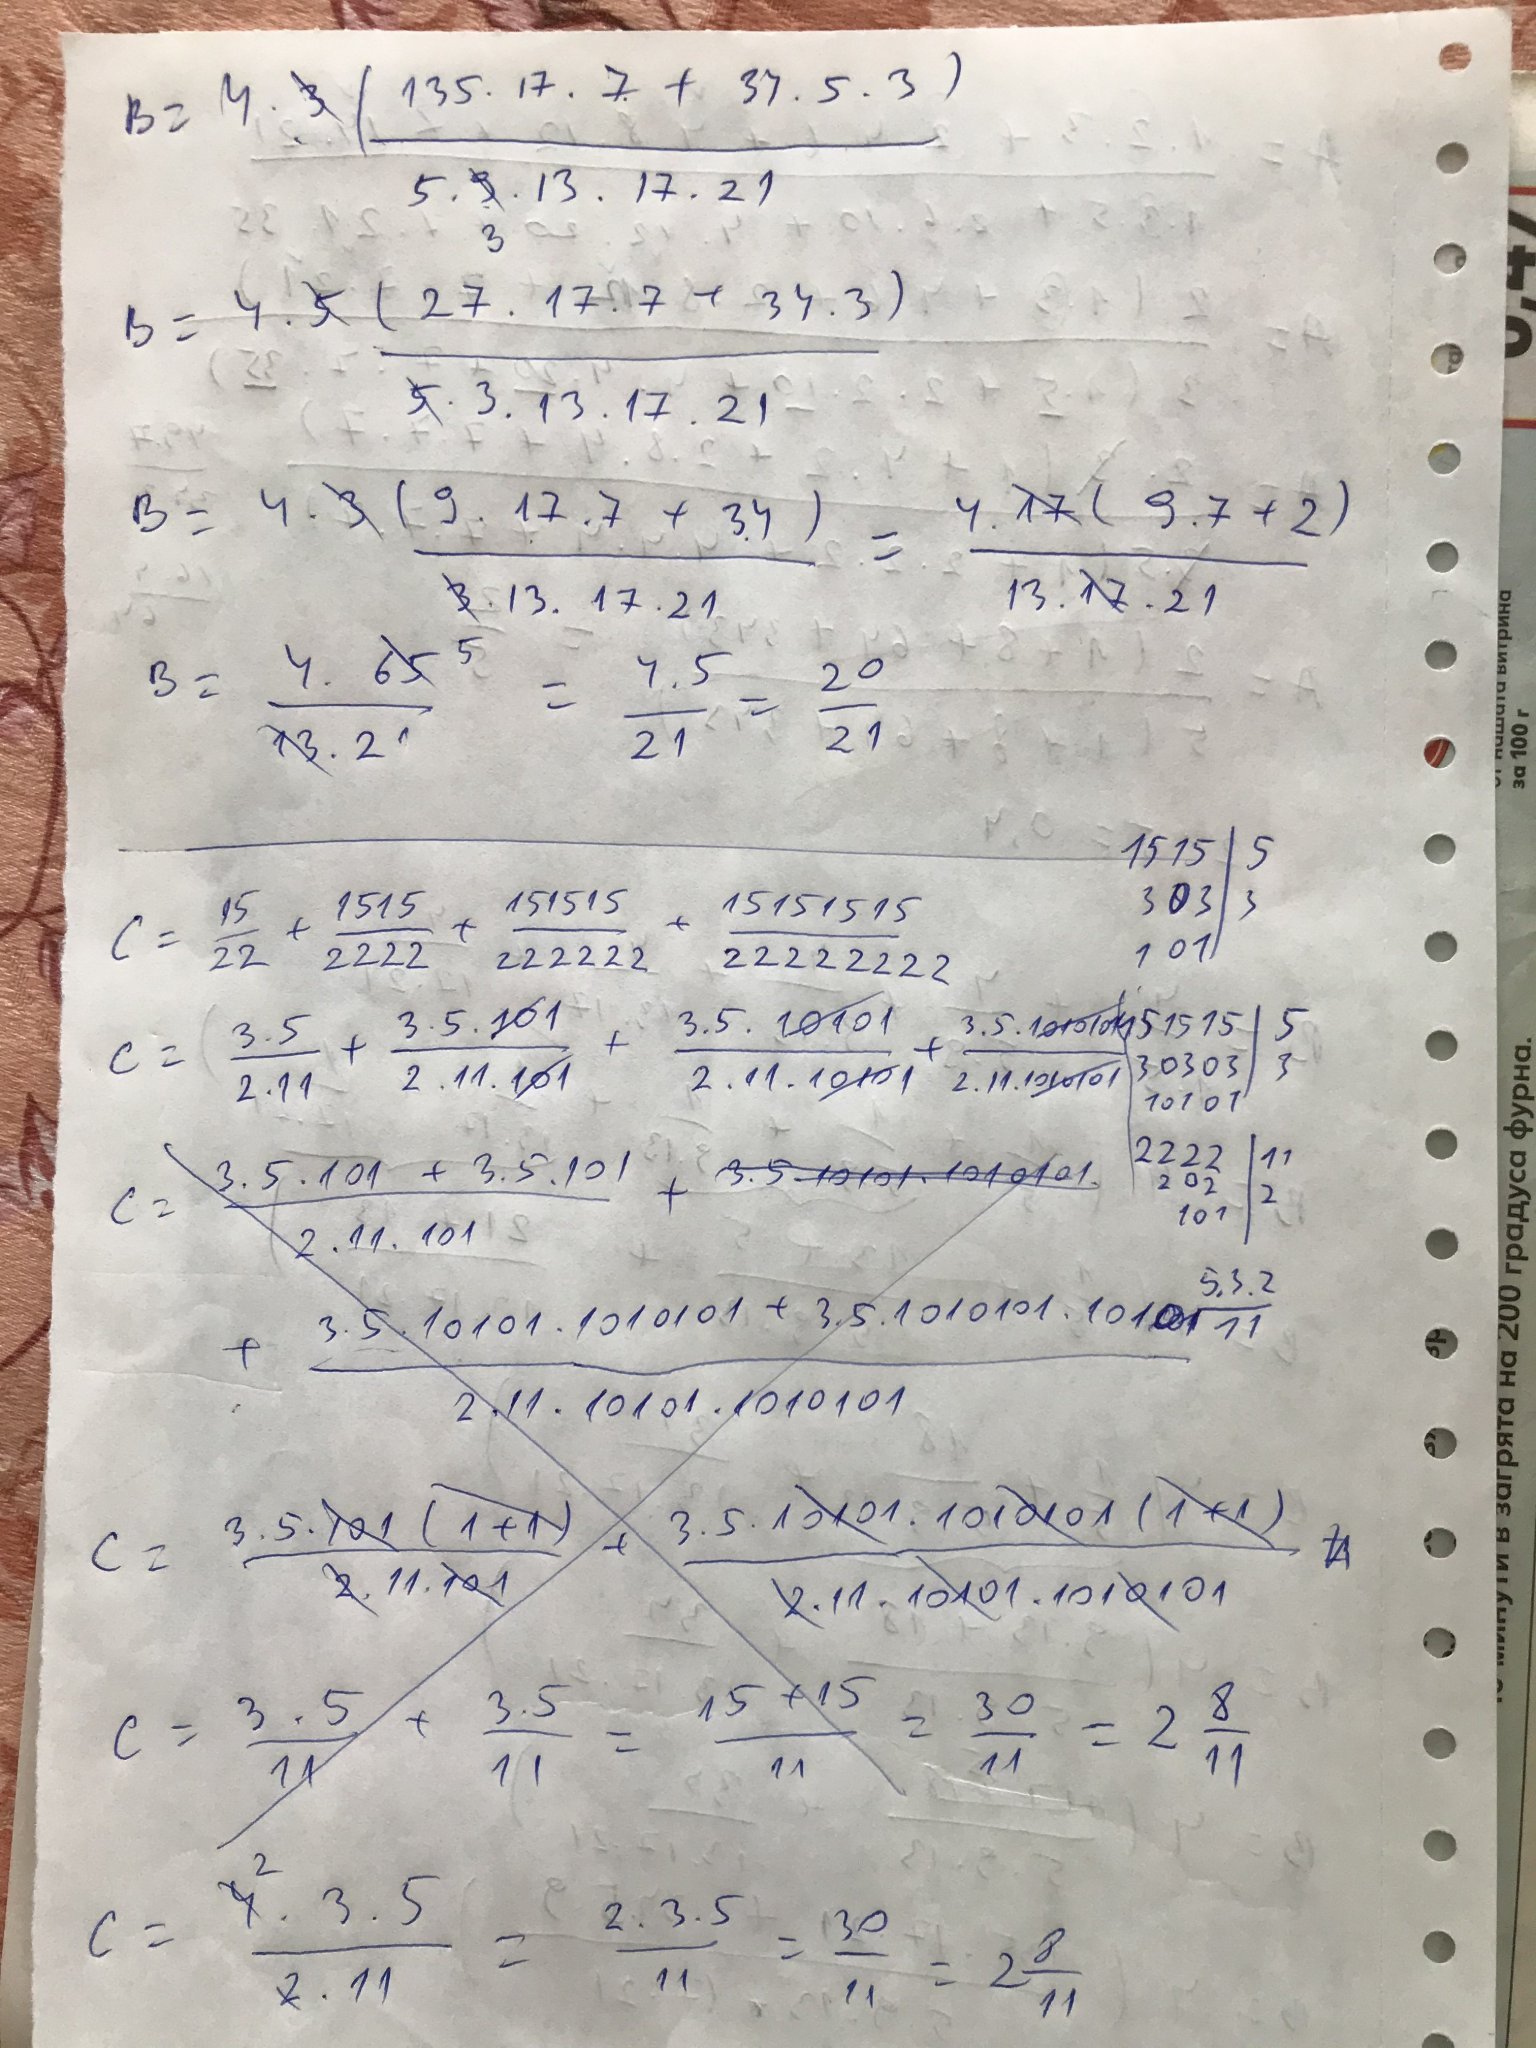 B = 4 . 3 ( 135 . 17 . 7 + 34 . 5 . 3 )
5 . 9 . 13 . 17 . 21
3
B = 4 . 5 ( 27 . 17 . 7 + 34 . 3 )
5 . 3 . 13 . 17 . 21
B = 4 . 3 ( 9 . 17 . 7 + 34 ) = 4 . 17 ( 9 . 7 + 2 )
3 . 13 . 17 . 21 13 . 17 . 21
B = 4 . 65 5 = 4 . 5 = 20
13 . 21 21 21
1515 | 5
303 | 3
101
C = 15 + 1515 + 151515 + 15151515
22 2222 222222 22222222
C = 3 . 5 + 3 . 5 . 101 + 3 . 5 . 10101 + 3 . 5 . 1010101
2 . 11 2 . 11 . 101 2 . 11 . 10101 2 . 11 . 1010101
151515 | 5
30303 | 3
10101
C = 3 . 5 . 101 + 3 . 5 . 101 + 3 . 5 . 10101 . 1010101
2 . 11 . 101
2222 | 11
202 | 2
101
5 . 3 . 2
11
+ 3 . 5 . 10101 . 1010101 + 3 . 5 . 1010101 . 10101
2 . 11 . 10101 . 1010101
C = 3 . 5 . 101 ( 1 + 1 ) + 3 . 5 . 10101 . 1010101 ( 1 + 1 )
2 . 11 . 101 2 . 11 . 10101 . 1010101
C = 3 . 5 + 3 . 5 = 15 + 15 = 30 = 2 8
11 11 11 11 11
2
C = 4 . 3 . 5 = 2 . 3 . 5 = 30 = 2 8
2 . 11 11 11 11
за 100 г
минути в загрята на 200 градуса фурна.